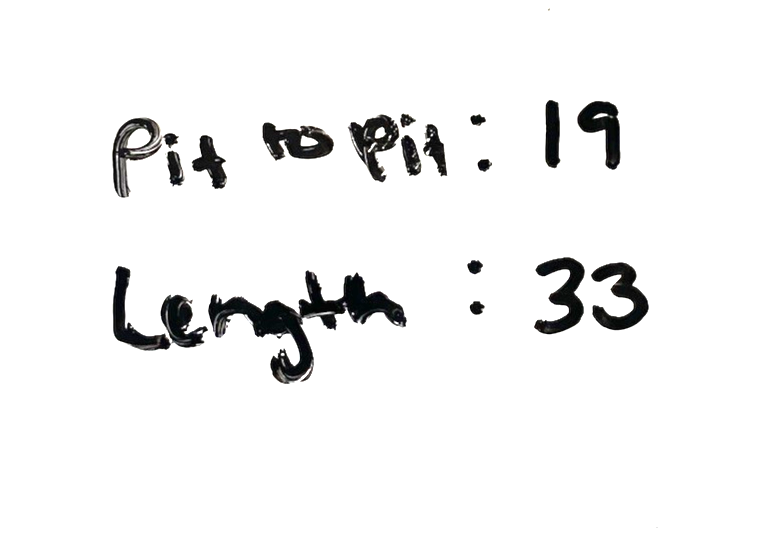 Pit to pit: 19
Length : 33